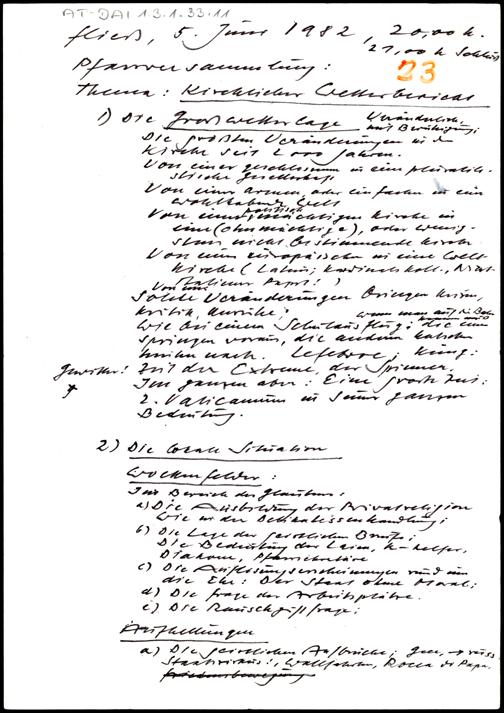 AT-DAI 13.1.33.11
Fließ, 5. Juni 1982, 20,00 h.
21,00 h Schluß
Pfarrversammlung:
23
Thema: Kirchlicher Wetterbericht
1) Die Großwetterlage Veränderlich,
mit Beruhigung;
Die größten Veränderungen in der
Kirche seit 2000 Jahren.
Von einer geschlossenen in eine pluralisti-
stische Gesellschaft
Von einer armen, oder einfachen in eine
wohlhabende Welt
Von einer politisch mächtigen Kirche in
eine (ohnmächtige), oder wenig-
stens nicht bestimmende Kirche
Von einer europäischen in eine Welt-
kirche (Latein; Kardinalskoll., Nicht-
italiener Papst!)
Solche Veränderungen bringen Krisen,
Kritik, Unruhe!
wenn man auf die Bahn
Wie bei einem Schulausflug: die einen
springen voraus, die andern hatschen
hinten nach. Lefebvre; Küng:
Gewitter! Zeit der Extreme, der Spinner.
Im ganzen aber: Eine große Zeit:
2. Vaticanum in seiner ganzen
Bedeutung.
2) Die lokale Situation
Wolkenfelder:
Im Bereich des Glaubens:
a) Die Ausbildung der Privatreligion
Wie in der Delikatessenhandlung;
b) Die Lage der geistlichen Berufe;
Die Bedeutung der Laien, K-helfer,
Diakone, Pfarrsekretäre
c) Die Auflösungserscheinungen rund um
die Ehe: Der Staat ohne Moral;
d) Die Frage der Arbeitsplätze.
e) Die Rauschgiftfrage;
Aufhellungen
a) Die geistlichen Aufbrüche;
Wallfahrten, Rocca di Papa,
Friedensbewegung